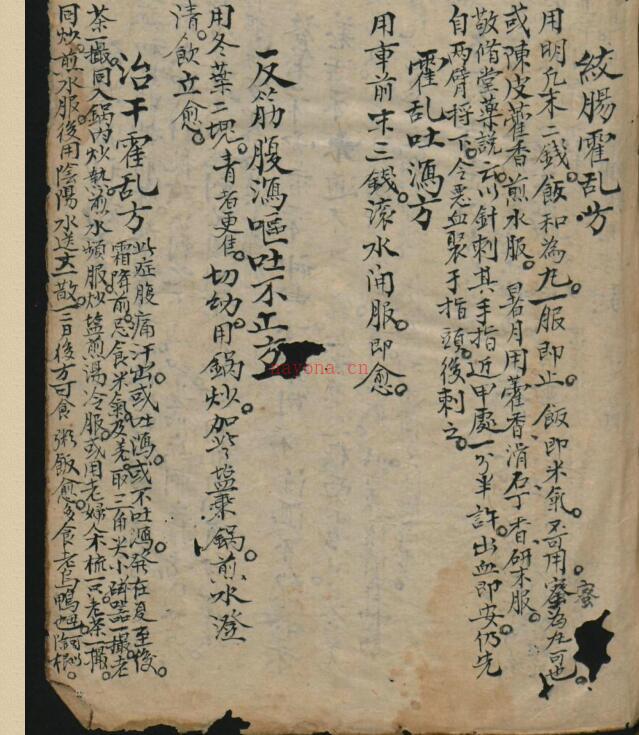 絞腸霍乱方
用明凡末二錢。飯和為丸。一服即止。飯即米氣。不可用。蜜為丸可也。
蜜
或陳皮藿香煎水服。暑月用藿香滑石丁香研末服。
敬脩堂藥説云。以針刺其手指近甲處一分半許。出血即安。仍先
自兩臂捋下。令惡血聚于指頭。後刺之。
霍乱吐瀉方
用車前末三錢。滚水開服。即愈。
反筋腹瀉嘔吐不止方
用冬葉二塊。青者更佳。切幼。用鍋炒。加些塩乘鍋。煎水澄
清。飲立愈。
治干霍乱方
此症腹痛汗出。或吐瀉。或不吐瀉。發在夏至後。
霜降前。忌食米氣及羌。取三角尖小 器一撮。老
茶一撮。同入鍋内炒熱。煎水頻服。炒塩煎湯冷服。或用老婦人木梳一只。老茶一撮。
同炒。煎水服。後用陰陽水送 散。二三日後方可食粥飯。愈。多食老烏鴨
nayona.cn